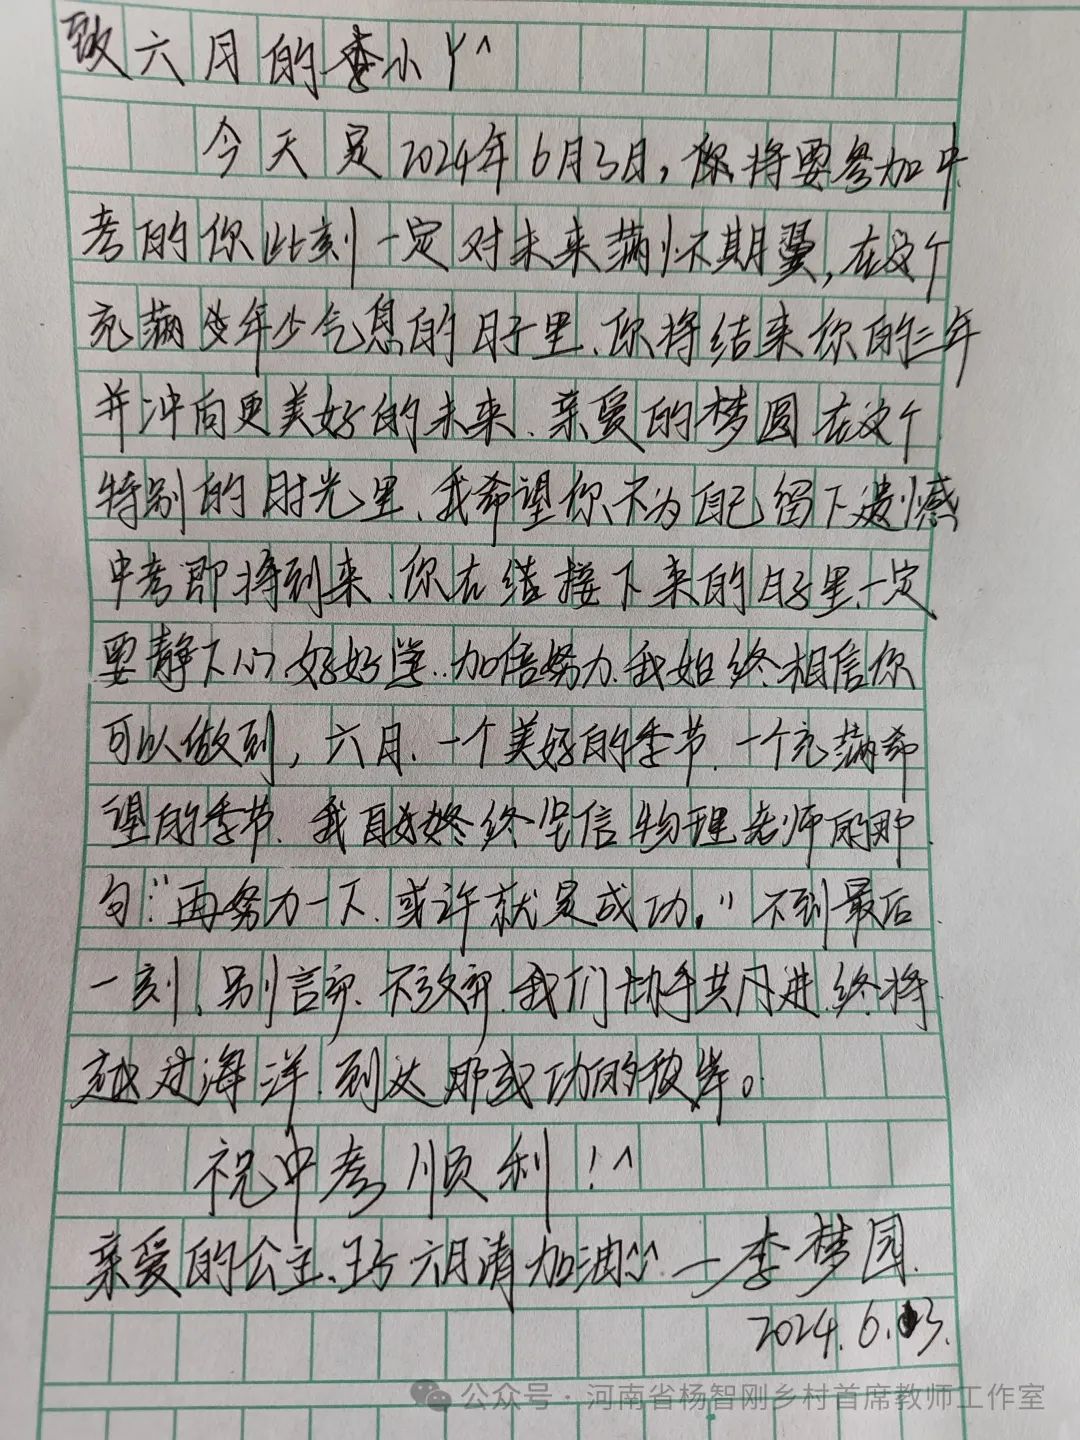 致六月的李小丫^
今天是2024年6月3日,你将要参加中
考的你此刻一定对未来满怀期翼,在这个
充满年少气息的日子里、你将结来你的三年
并冲向更美好的未来、亲爱的梦圆在这个
特别的时光里、我希望你不为自己留下遗憾
中考即将到来、你在接下来的日子里、一定
要静下心好好学、加倍努力、我始终相信你
可以做到,六月、一个美好的季节、一个充满希
望的季节、我始终坚信物理老师的那
句:“再努力一下、或许就是成功。”不到最后
一刻、别言弃、不放弃、我们携手共同进、终将
越过海洋、到达那成功的彼岸。
祝中考顺利!^
亲爱的公主、王子六月请加油^^—李梦圆
2024.6.03.
公众号·河南省杨智刚乡村首席教师工作室